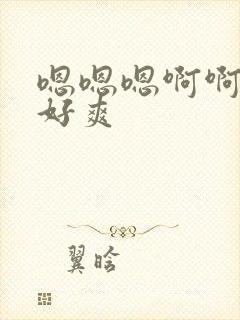 嗯嗯嗯啊啊
好爽
翼晗